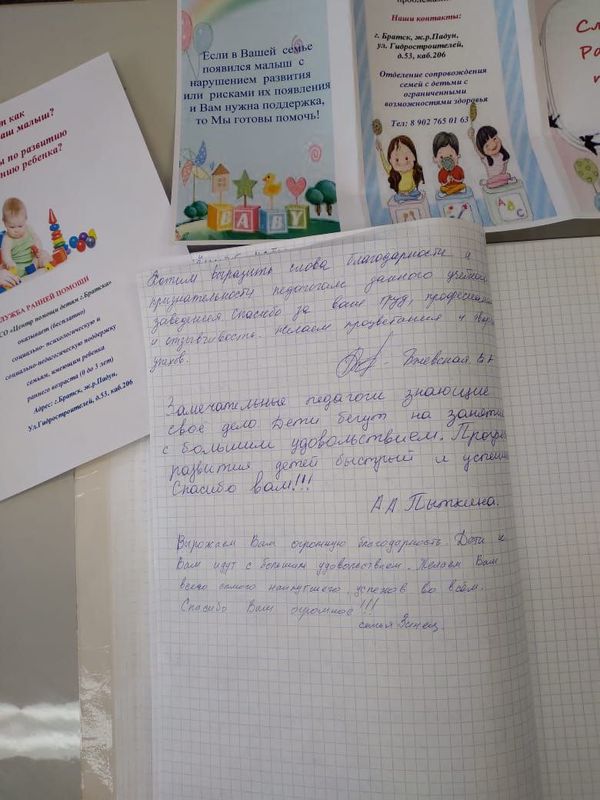 т как
аш малыш?
ы по развитию
нию ребенка?
СЛУЖБА РАННЕЙ ПОМОЩИ
СО «Центр помощи детям г.Братска»
оказывает (бесплатно)
социально- психологическую и
социально-педагогическую поддержку
семьям, имеющим ребенка
раннего возраста (0 до 3 лет)
Адрес: г.Братск, ж.р.Падун,
Ул.Гидростроителей, д.53, каб.206
Если в Вашей семье
появился малыш с
нарушением развития
или рисками их появления
и Вам нужна поддержка,
то Мы готовы помочь!
BABY
Наши контакты:
г. Братск, ж.р.Падун,
ул. Гидростроителей,
д.53, каб.206
Отделение сопровождения
семей с детьми с
ограниченными
возможностями здоровья
Тел: 8 902 765 01 63
ABC
Сл
Ра
п
Хотим выразить слова благодарности и
признательности педагогам данного учебного
заведения. Спасибо за ваш труд, професси
и отзывчивость. Желаем процветания и
успехов.
Замечательные педагоги знающие
свое дело Дети бегут на занятия
с большим удовольствием. Прогре
развития детей быстрый и успешн
Спасибо вам!!!
А А Пыткина.
Выражаем Вам огромную благодарность. Дети к
Вам идут с большим удовольствием. Желаем Вам
всего самого наилучшего, успехов во всём.
Спасибо Вам огромное!!!
семья Зинец